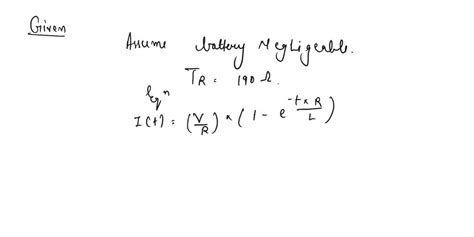 Given
Assume battery Negligeable.
T_R = 190 Ω.
Eqⁿ
I(t) = (V/R) × (1 - e^(-t×R/L))